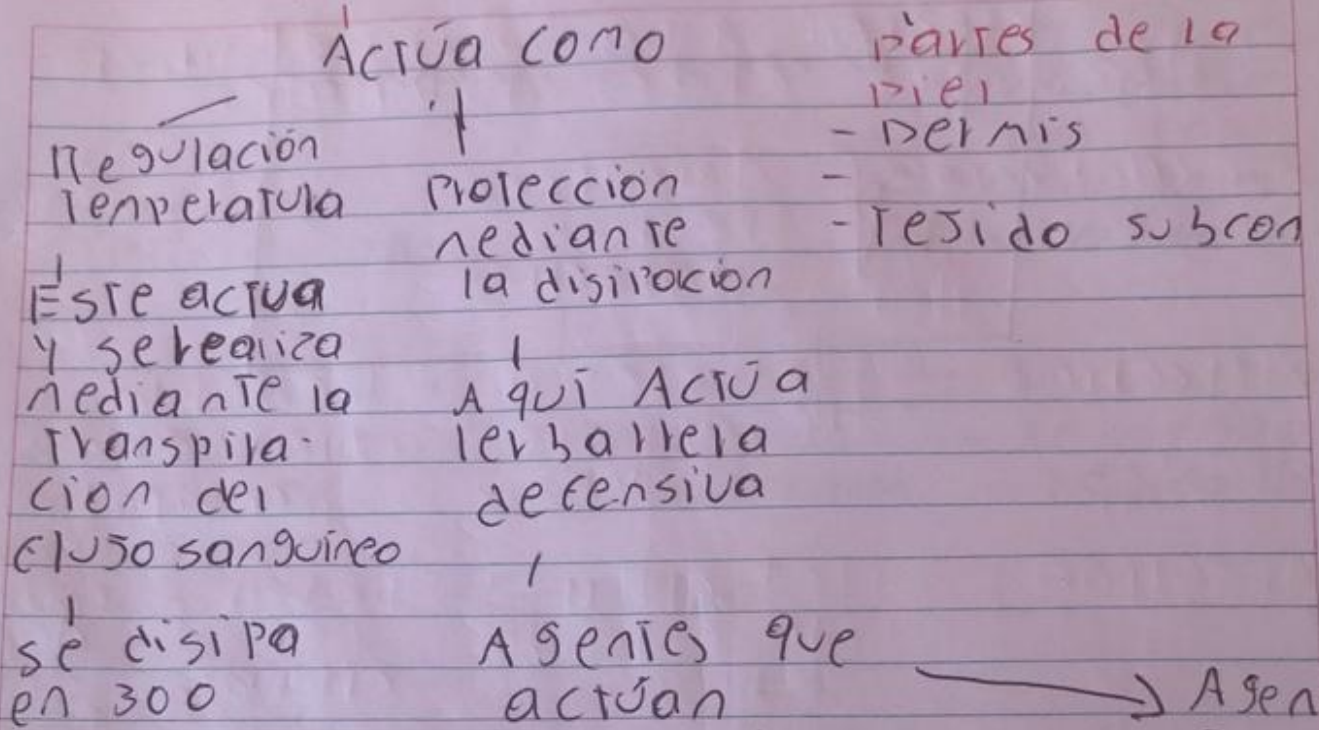 Actúa como
Regulación
Temperatura
Este actua
y se realiza
mediante la
transpira-
cion del
flujo sanguineo
se disipa
en 300
Protección
mediante
la disipación
Aquí Actúa
1er barrera
defensiva
Agentes que
actúan
Agen
partes de la
piel
- Dermis
-
- Tejido subcon